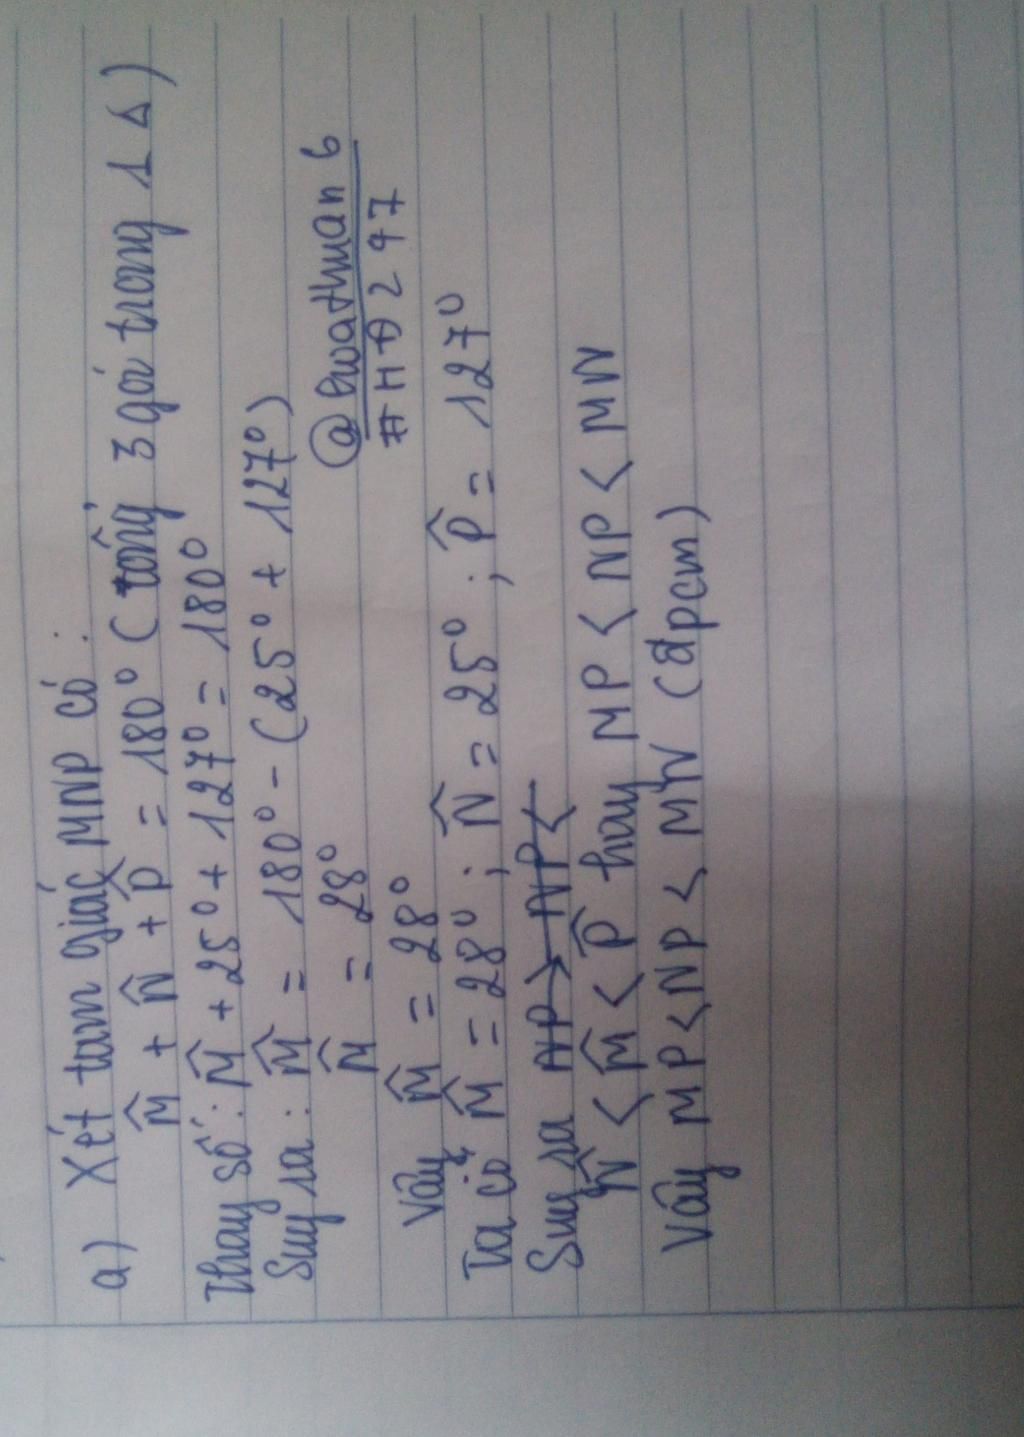 a) Xét tam giác MNP có :
M̂ + N̂ + P̂ = 180° (tổng 3 góc trong 1 Δ)
Thay số : M̂ + 25° + 127° = 180°
Suy ra : M̂ = 180° - (25° + 127°)
M̂ = 28°
@hwathuan6
#HĐ297
Vậy M̂ = 28°
Ta có M̂ = 28° ; N̂ = 25° ; P̂ = 127°
Suy ra NP > NP <
N̂ < M̂ < P̂ hay MP < NP < MN
Vậy MP < NP < MN (đpcm)